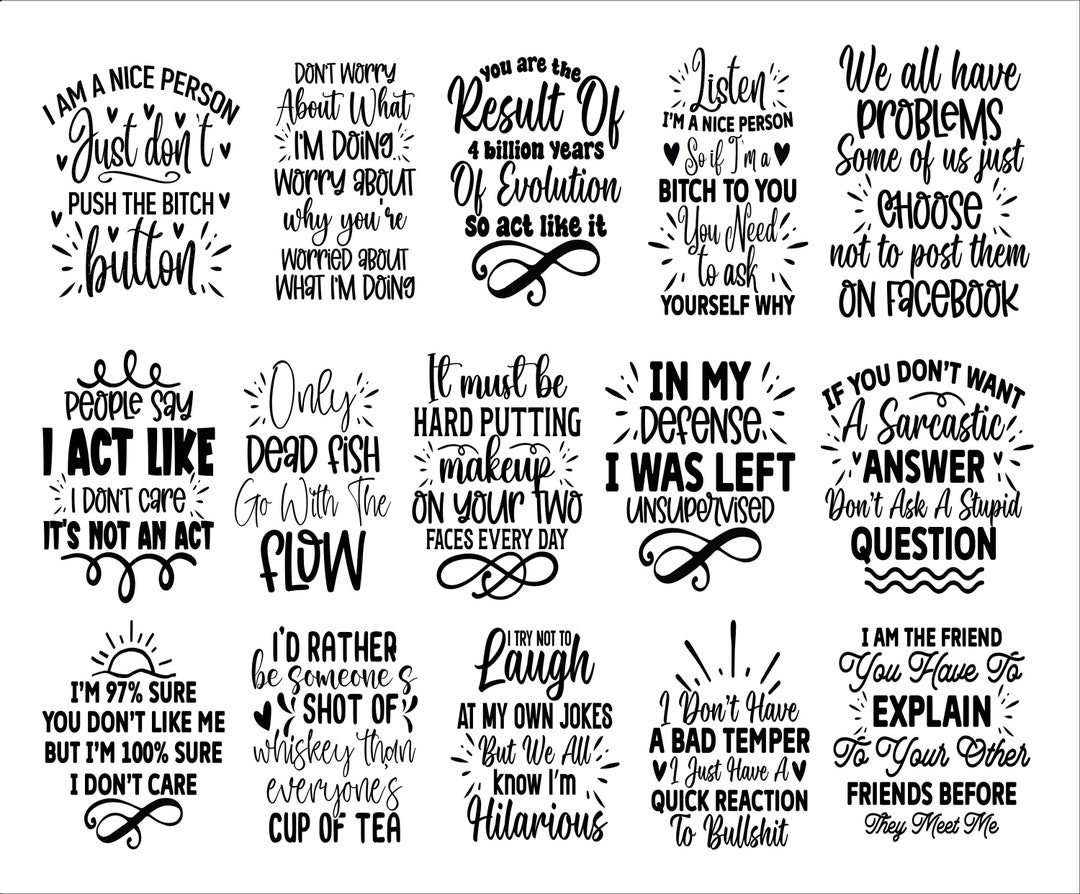 I AM A NICE PERSON
Just don't
PUSH THE BITCH
button
DON'T WORRY
About What
I'M DOING
WORRY ABOUT
why you're
WORRIED ABOUT
WHAT I'M DOING
you are the
Result Of
4 billion years
Of Evolution
so act like it
Listen
I'M A NICE PERSON
So if I'm a
BITCH TO YOU
You Need
to ask
YOURSELF WHY
We all have
PROBLEMS
Some of us just
CHOOSE
not to post them
ON FACEBOOK
PEOPLE SAY
I ACT LIKE
I DON'T CARE
IT'S NOT AN ACT
Only
DEAD FISH
Go With The
FLOW
It must be
HARD PUTTING
makeup
ON YOUR TWO
FACES EVERY DAY
IN MY
DEFENSE
I WAS LEFT
UNSUPERVISED
IF YOU DON'T WANT
A Sarcastic
ANSWER
Don't Ask A Stupid
QUESTION
I'M 97% SURE
YOU DON'T LIKE ME
BUT I'M 100% SURE
I DON'T CARE
I'D RATHER
be someone's
SHOT OF
whiskey than
everyone's
CUP OF TEA
I TRY NOT TO
Laugh
AT MY OWN JOKES
But We All
know I'm
Hilarious
I Don't Have
A BAD TEMPER
I Just Have A
QUICK REACTION
To Bullshit
I AM THE FRIEND
You Have To
EXPLAIN
To Your Other
FRIENDS BEFORE
They Meet Me